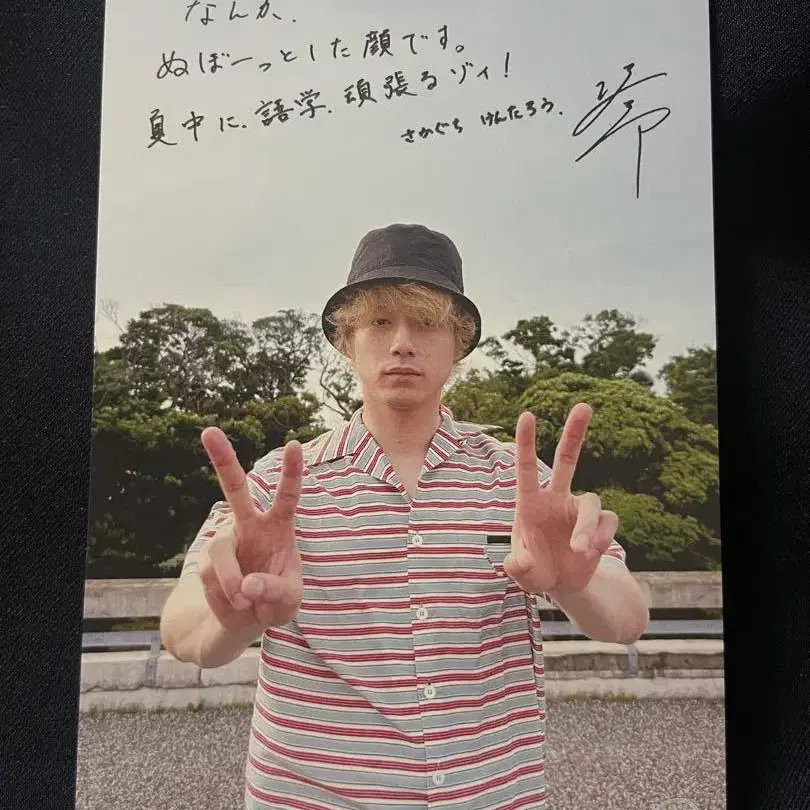 なんか、
ぬぼーっとした顔です。
夏中に、語学、頑張るゾィ!
さかぐち けんたろう.